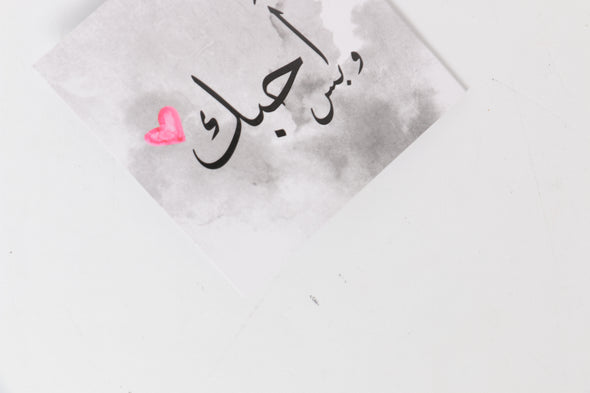 أحبك
وبس